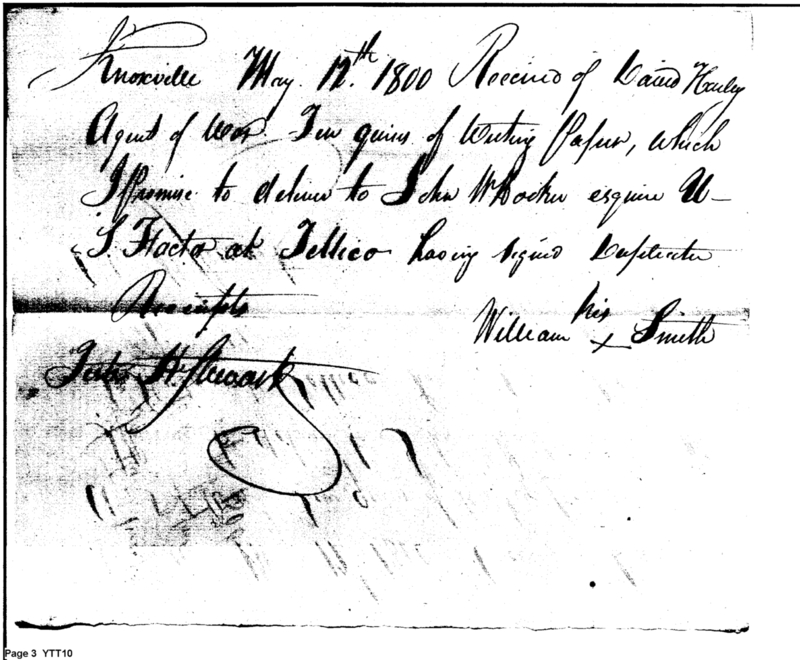 Knoxville May 12th. 1800 Received of David Henley
Agent of War Ten quires of Writing Paper, which
I Promise to deliver to John W Hooker esquire U–
S. Factor at Tellico having signed Duplicate
Receipts
William his x Smith
John H.
Page 3 YTT10